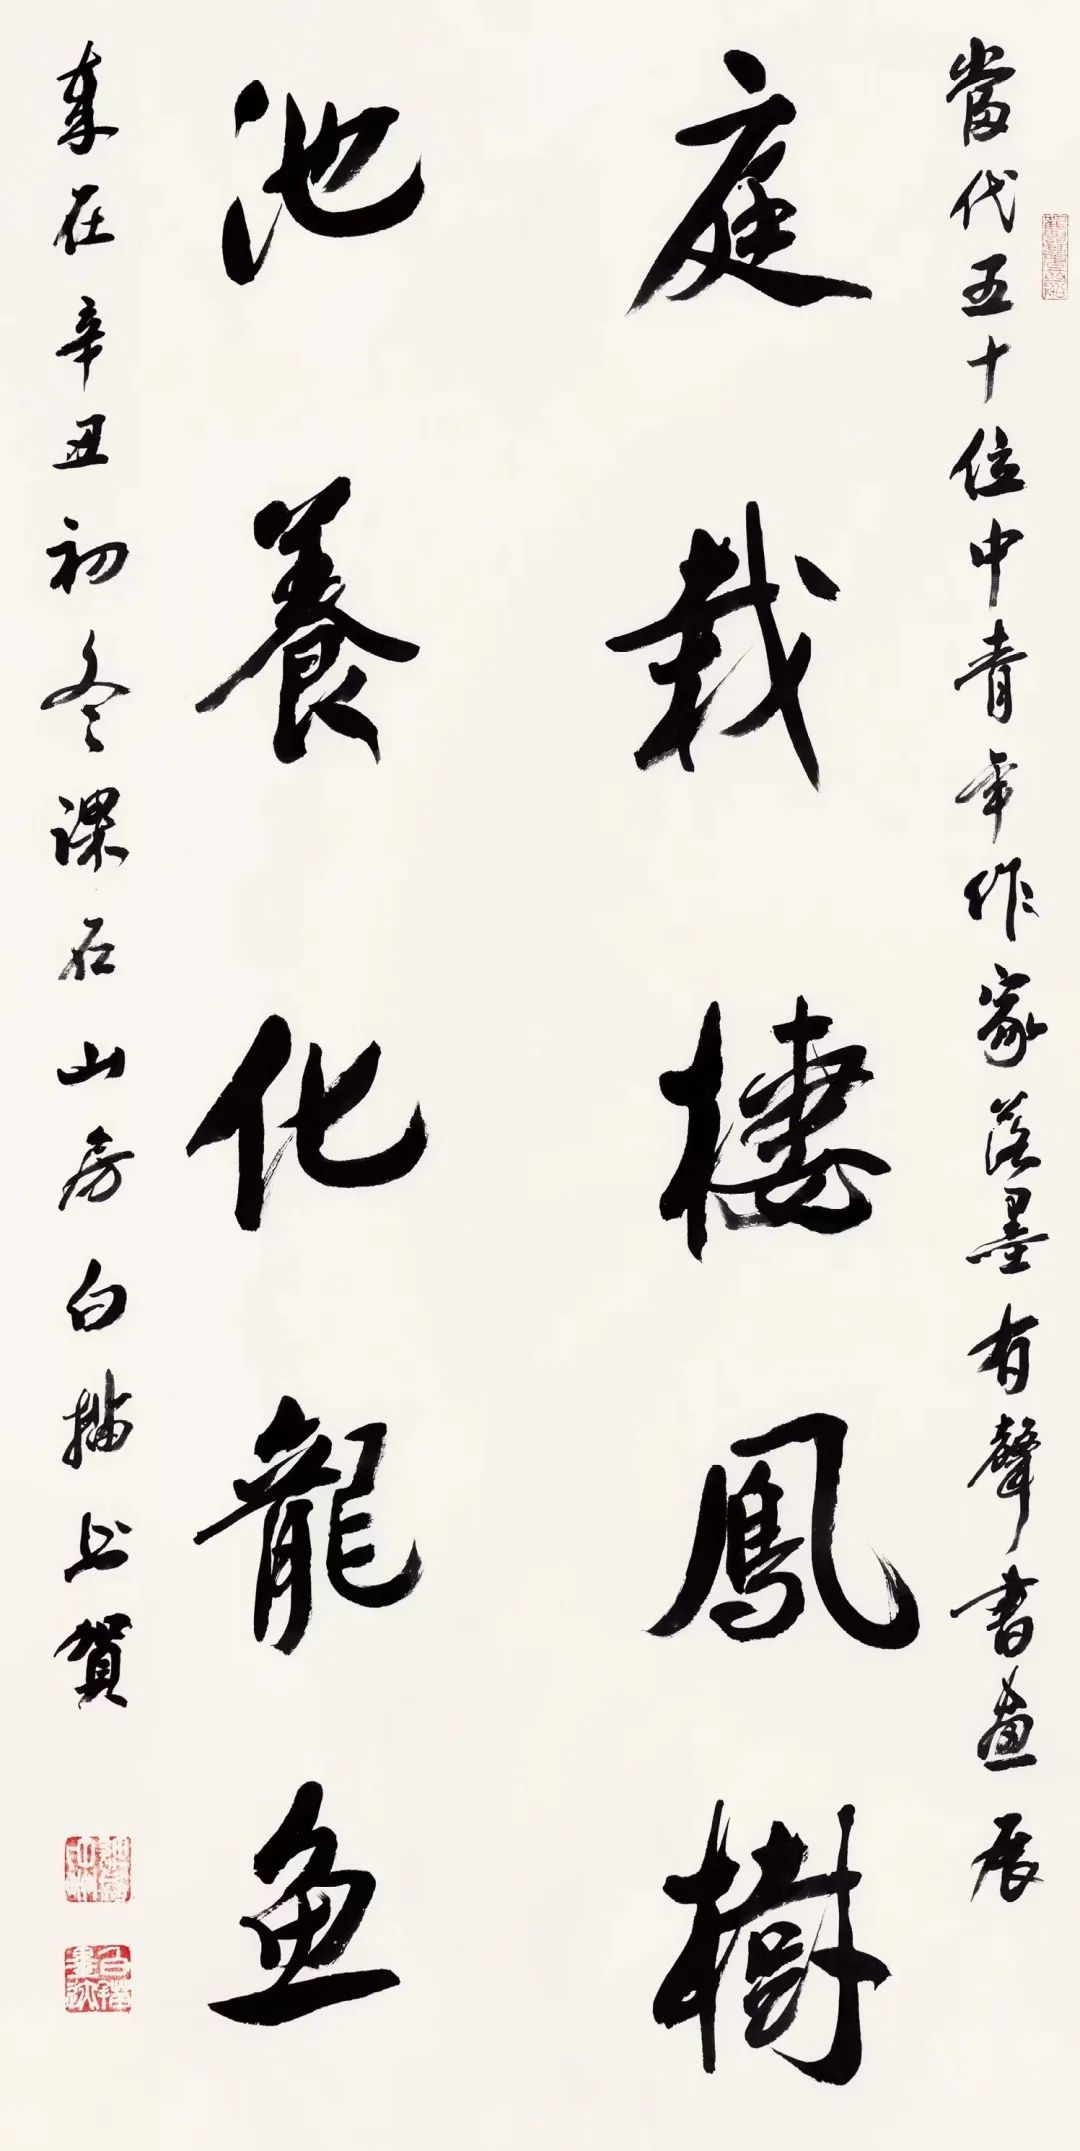 當代五十位中青年作家落墨有聲書畫展
庭栽棲鳳樹
池養化龍魚
歲在辛丑初冬課石山房白描上賀